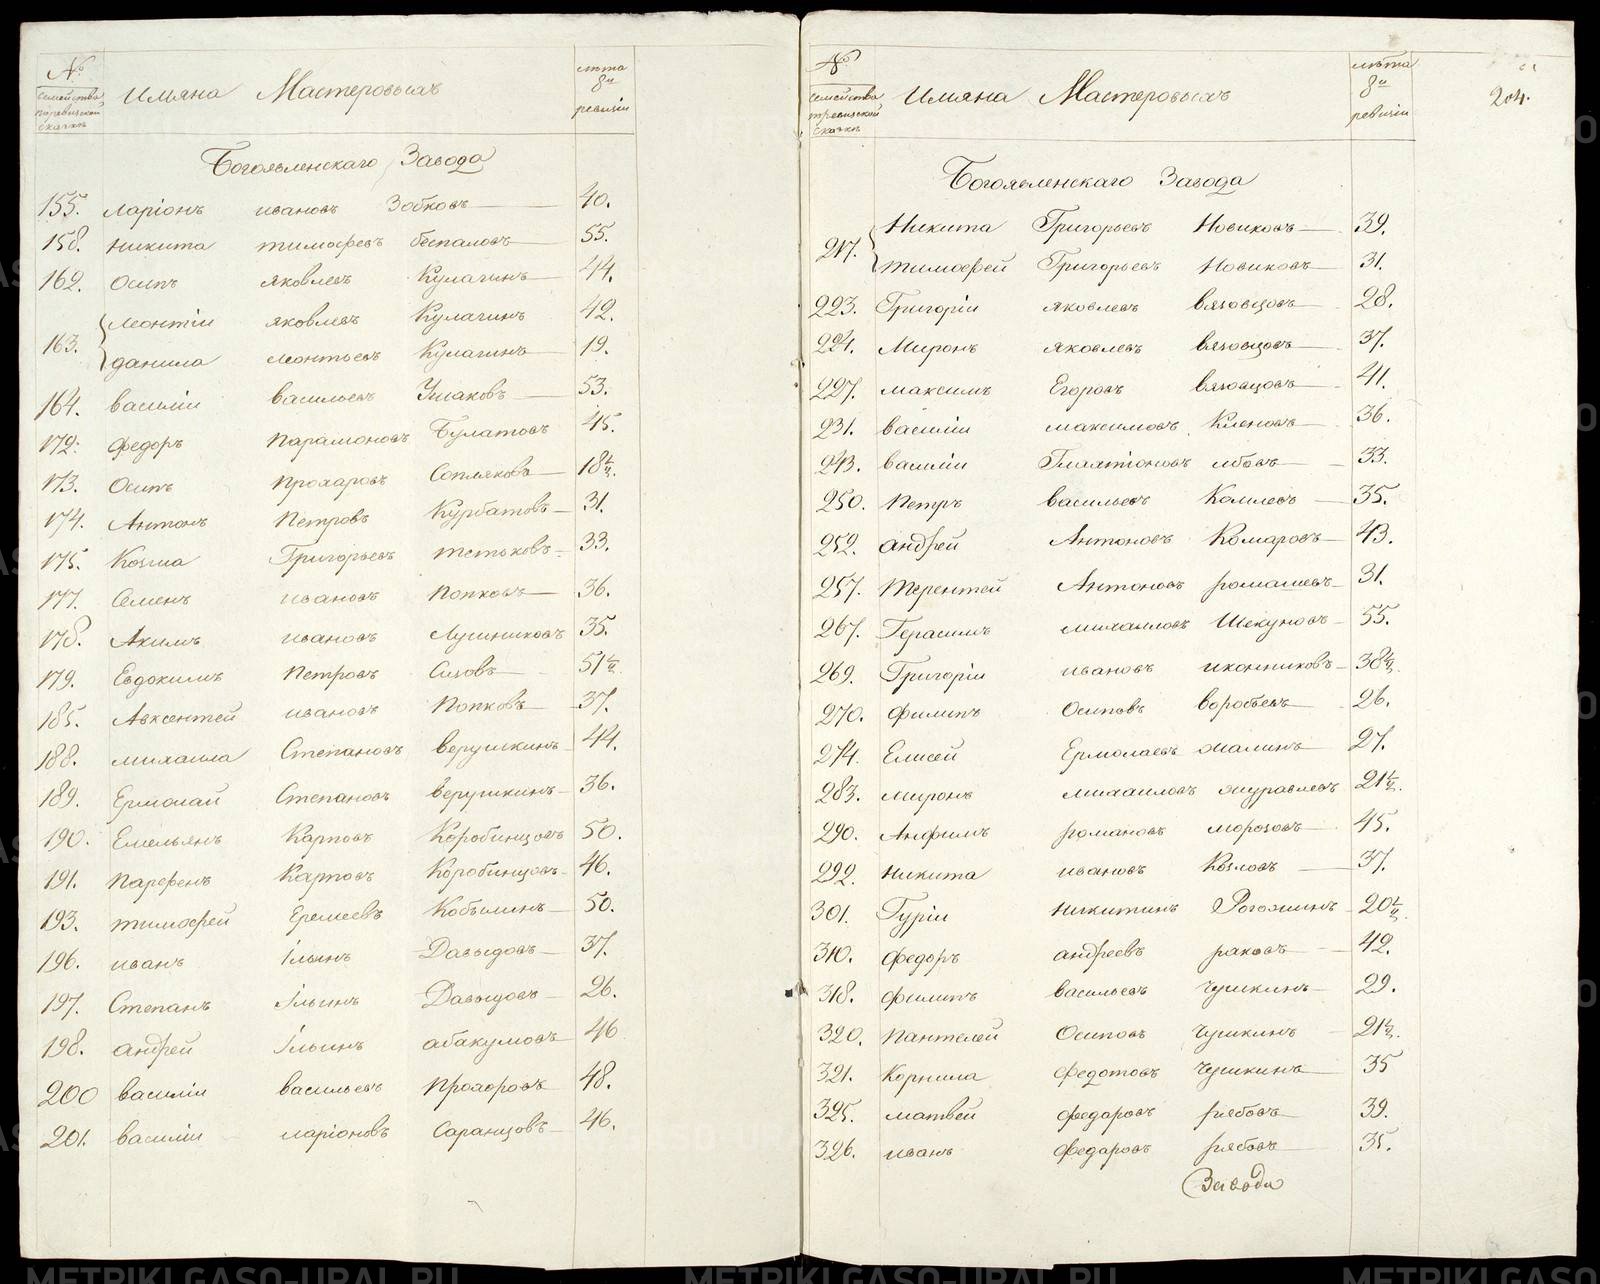 №
семейства по ревизской скаске
Имяна Мастеровыхъ
лѣта 8й ревизіи
Богоявленскаго Завода
155. Ларіонъ ивановъ Зобковъ 40.
158. Никита тимофеевъ беспаловъ 55.
162. Осипъ яковлевъ Кулагинъ 44.
163. Леонтіи яковлевъ Кулагинъ 42.
данила леонтьевъ Кулагинъ 19.
164. василіи васильевъ Ушаковъ 53.
172. федоръ Парамоновъ Булатовъ 45.
173. Осипъ Прохаровъ Сопляковъ 18½.
174. Антонъ Петровъ Курбатовъ 31.
175. Козма Григорьевъ 33.
177. Семенъ ивановъ Попковъ 36.
178. Акимъ ивановъ Лушниковъ 35.
179. Евдокимъ Петровъ Сизовъ 51½.
185. Авксентей ивановъ Попковъ 37.
188. михаила Степановъ верушкинъ 44.
189. Ермолай Степановъ верушкинъ 36.
190. Емельянъ Карповъ Коробинцовъ 50.
191. Парфенъ Карповъ Коробинцовъ 46.
193. тимофей Еремеевъ Кобылинъ 50.
196. иванъ Ильинъ Давыдовъ 37.
197. Степанъ Ильинъ Давыдовъ 26.
198. андрей Ильинъ абакумовъ 46
200 василіи васильевъ Прохоровъ 48.
201. василіи ларіоновъ Саранцовъ 46.
№
семейства по ревизской скаске
Имяна Мастеровыхъ
лѣта 8й ревизіи
204.
Богоявленскаго Завода
217. Никита Григорьевъ Новиковъ 39.
тимофей Григорьевъ Новиковъ 31.
223. Григоріи яковлевъ вязовцовъ 28.
224. Миронъ яковлевъ вязовцовъ 37.
227. максимъ Егоровъ вязовцовъ 41.
231. василіи максимовъ Кленовъ 36.
243. василіи Галахтіоновъ 33.
250. Петръ васильевъ 35.
252. андрей Антоновъ Комаровъ 43.
257. терентей Антоновъ ромашевъ 31.
267. Герасимъ михаиловъ Шекуновъ 55.
269. Григоріи ивановъ иконниковъ 38½.
270. филипъ Осиповъ воробьевъ 26.
274. Елисей Ермолаевъ жалинъ 27.
283. миронъ михаиловъ журавлевъ 21½.
290. Анфимъ романовъ морозовъ 45.
292. Никита ивановъ Козловъ 37.
301. Гуріи Никитинъ Рогожинъ 20½.
310. федоръ андреевъ раковъ 42.
318. филипъ васильевъ чушкинъ 29.
320. Пантелей Осиповъ чушкинъ 21½.
321. Корнила федотовъ чушкинъ 35
325. матвей федаровъ рябовъ 39.
326. иванъ федаровъ рябовъ 35.
Завода
METRIKI.GASO-URAL.RU
METRIKI.GASO-URAL.RU